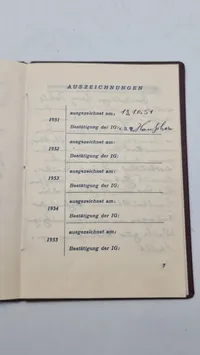 AUSZEICHNUNGEN
ausgezeichnet am: 13.XII.51
1951
Bestätigung der IG:
ausgezeichnet am:
1952
Bestätigung der IG:
ausgezeichnet am:
1953
Bestätigung der IG:
ausgezeichnet am:
1954
Bestätigung der IG:
ausgezeichnet am:
1955
Bestätigung der IG:
7